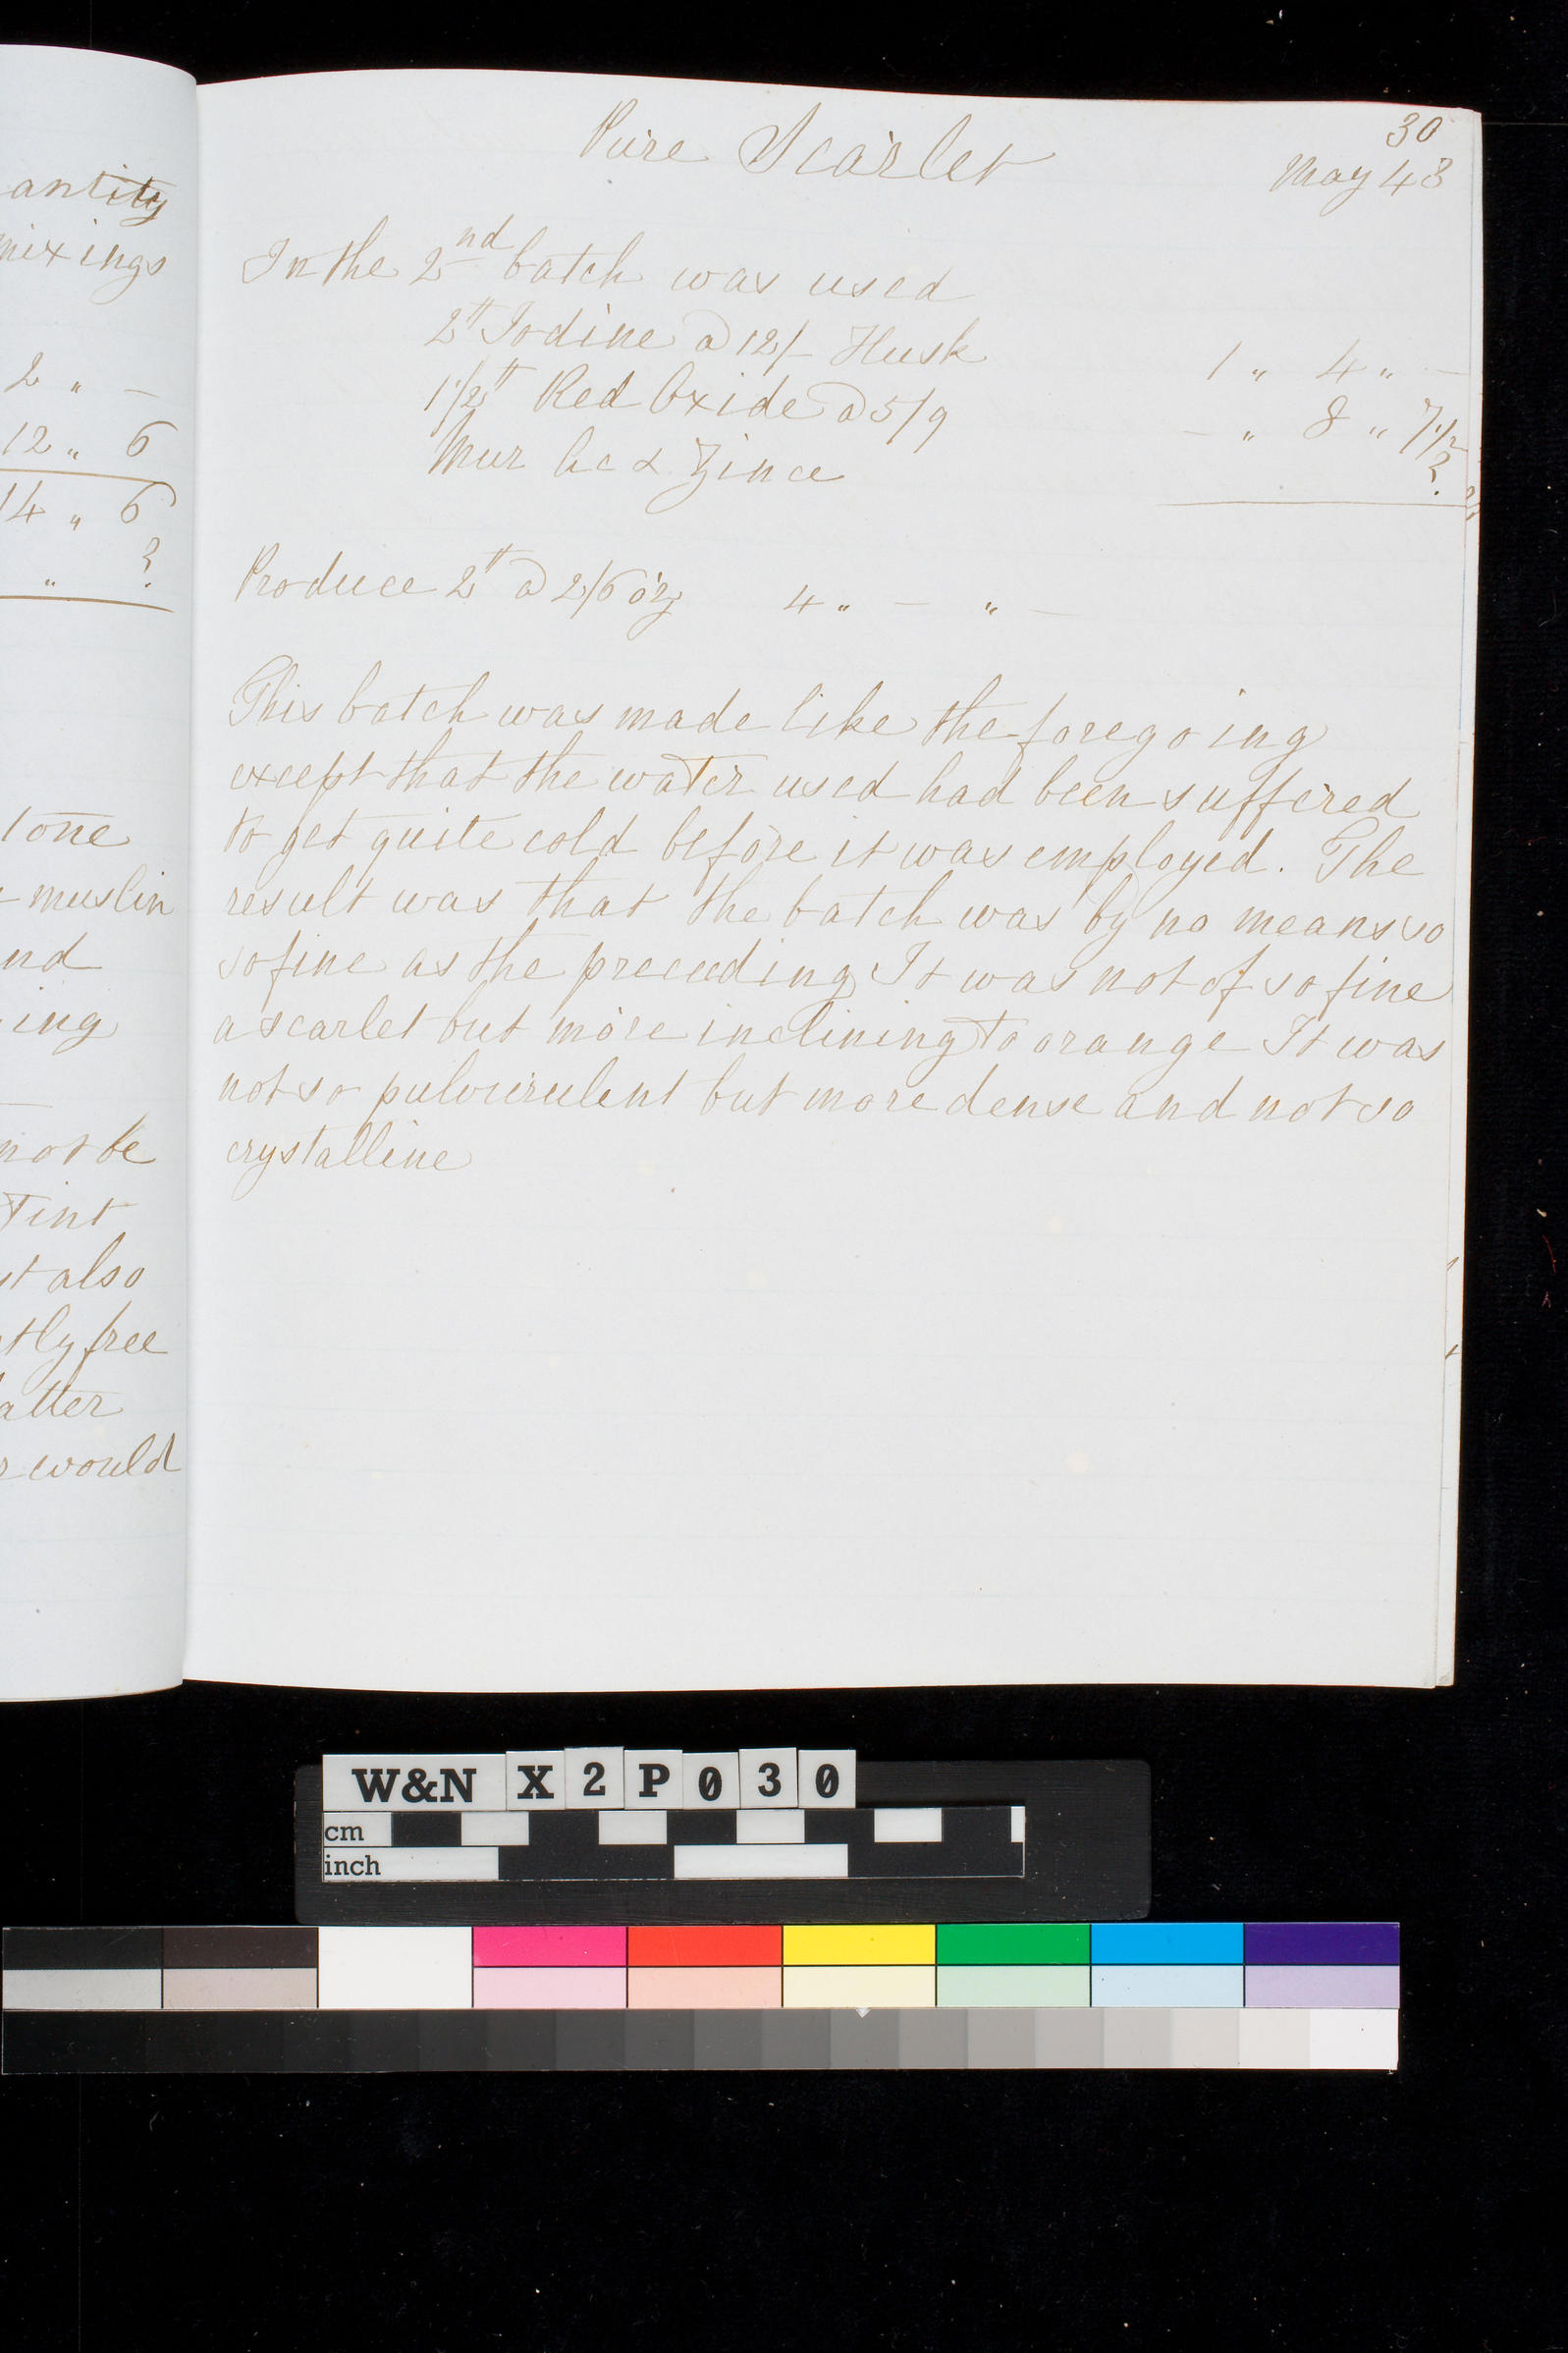 antity
mixings
2 " –
12 " 6
14 " 6
" ?
tone
muslin
nd
ing
not be
Tint
st also
tly free
latter
would
30
Pure Scarlet
May 48
In the 2nd batch was used
2tt Iodine @ 12/– Husk 1 " 4 " –
1 1/2tt Red Oxide @ 5/9 – " 8 " 7 1/2
Mur Ac & Zince ?
Produce 2tt @ 2/6 oz 4 " – " –
This batch was made like the foregoing
except that the water used had been suffered
to get quite cold before it was employed. The
result was that the batch was by no means so
so fine as the preceeding It was not of so fine
a scarlet but more inclining to orange It was
not so pulverulent but more dense and not so
crystalline
W&N X2P030
cm
inch